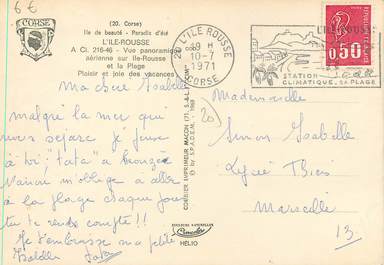 6 €
CORSE
(20. Corse)
Ile de beauté - Paradis d'été
L'ILE-ROUSSE
A Ci. 216-46 - Vue panoramique
aérienne sur Ile-Rousse
et la Plage
Plaisir et joie des vacances
20 L'ILE ROUSSE
9 H
10-7
1971
CORSE
L'ILE ROUSSE
STATION
CLIMATIQUE. SA PLAGE
0,50
Ma chère Isabelle
malgré la mer qui
nous sépare je pense
à toi, "tata" a bronzée
m'oblige a aller
à la plage chaque jour
tu te rends compte !!
Je t'embrasse ma petite
Isabelle
COMBIER IMPRIMEUR MACON (71, S.-&-L.)
© by S.P.A.D.E.M. 1968
20
Mademoiselle
Simon Isabelle
Lycée Thiers
Marseille
13.
COULEURS NATURELLES
HELIO